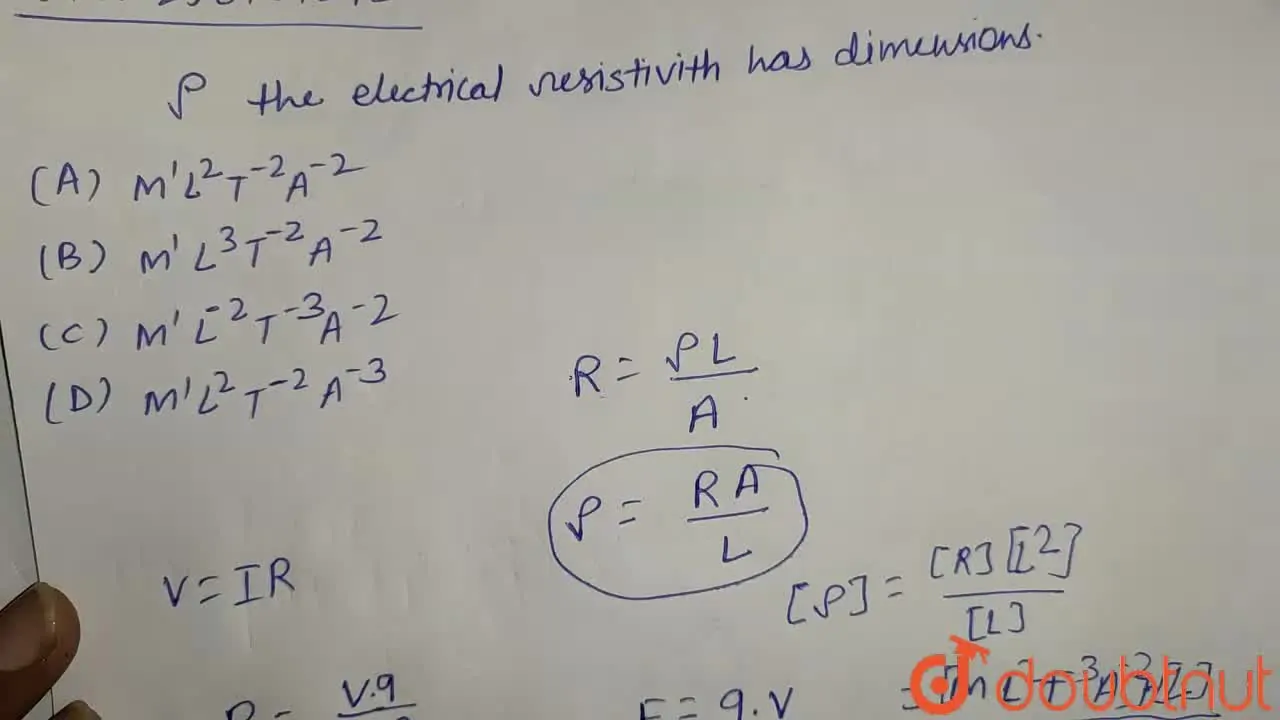 ρ the electrical resistivith has dimensions.
(A) M¹L²T⁻²A⁻²
(B) M¹L³T⁻²A⁻²
(C) M¹L⁻²T⁻³A⁻²
(D) M¹L²T⁻²A⁻³
R = ρL/A
ρ = RA/L
V = IR
[ρ] = [R][L²]/[L]
V.q
E = q.V
doubtnut